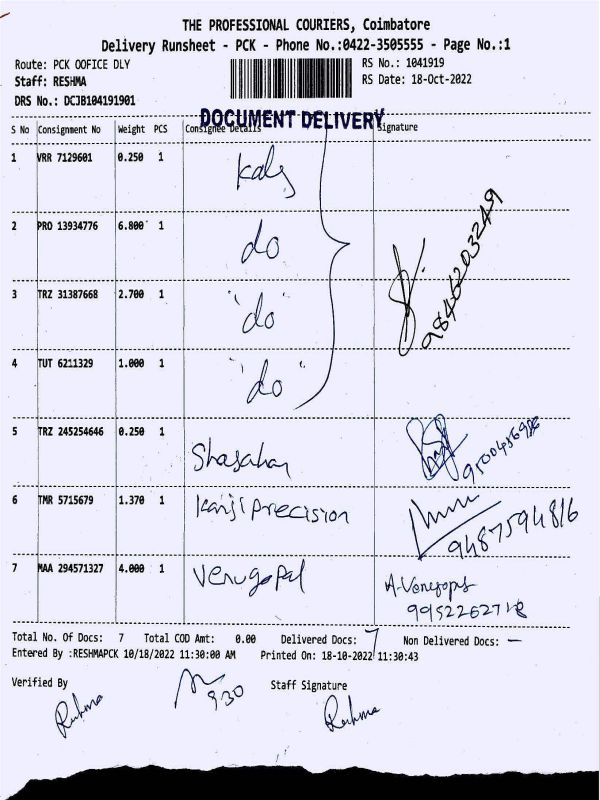 THE PROFESSIONAL COURIERS, Coimbatore
Delivery Runsheet - PCK - Phone No.:0422-3505555 - Page No.:1
Route: PCK OOFICE DLY RS No.: 1041919
Staff: RESHMA RS Date: 18-Oct-2022
DRS No.: DCJB104191901
DOCUMENT DELIVERY
S No Consignment No Weight PCS Consignee Details Signature
1 VRR 7129601 0.250 1
2 PRO 13934776 6.800 1 do
3 TRZ 31387668 2.700 1 "do"
4 TUT 6211329 1.000 1 "do"
9846203249
5 TRZ 245254646 0.250 1
6 TMR 5715679 1.370 1 Kanji Precision 9487594816
7 MAA 294571327 4.000 1 Venugopal
Total No. Of Docs: 7 Total COD Amt: 0.00 Delivered Docs: 7 Non Delivered Docs: —
Entered By :RESHMAPCK 10/18/2022 11:30:00 AM Printed On: 18-10-2022 11:30:43
Verified By 930 Staff Signature